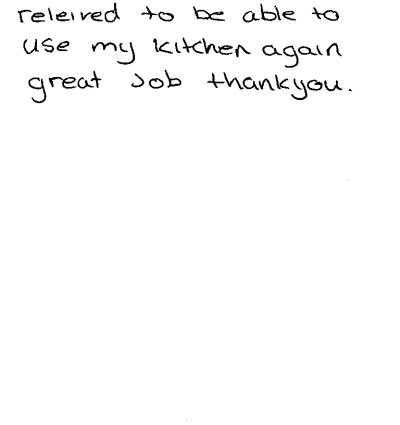 releived to be able to
use my kitchen again
great Job thankyou.